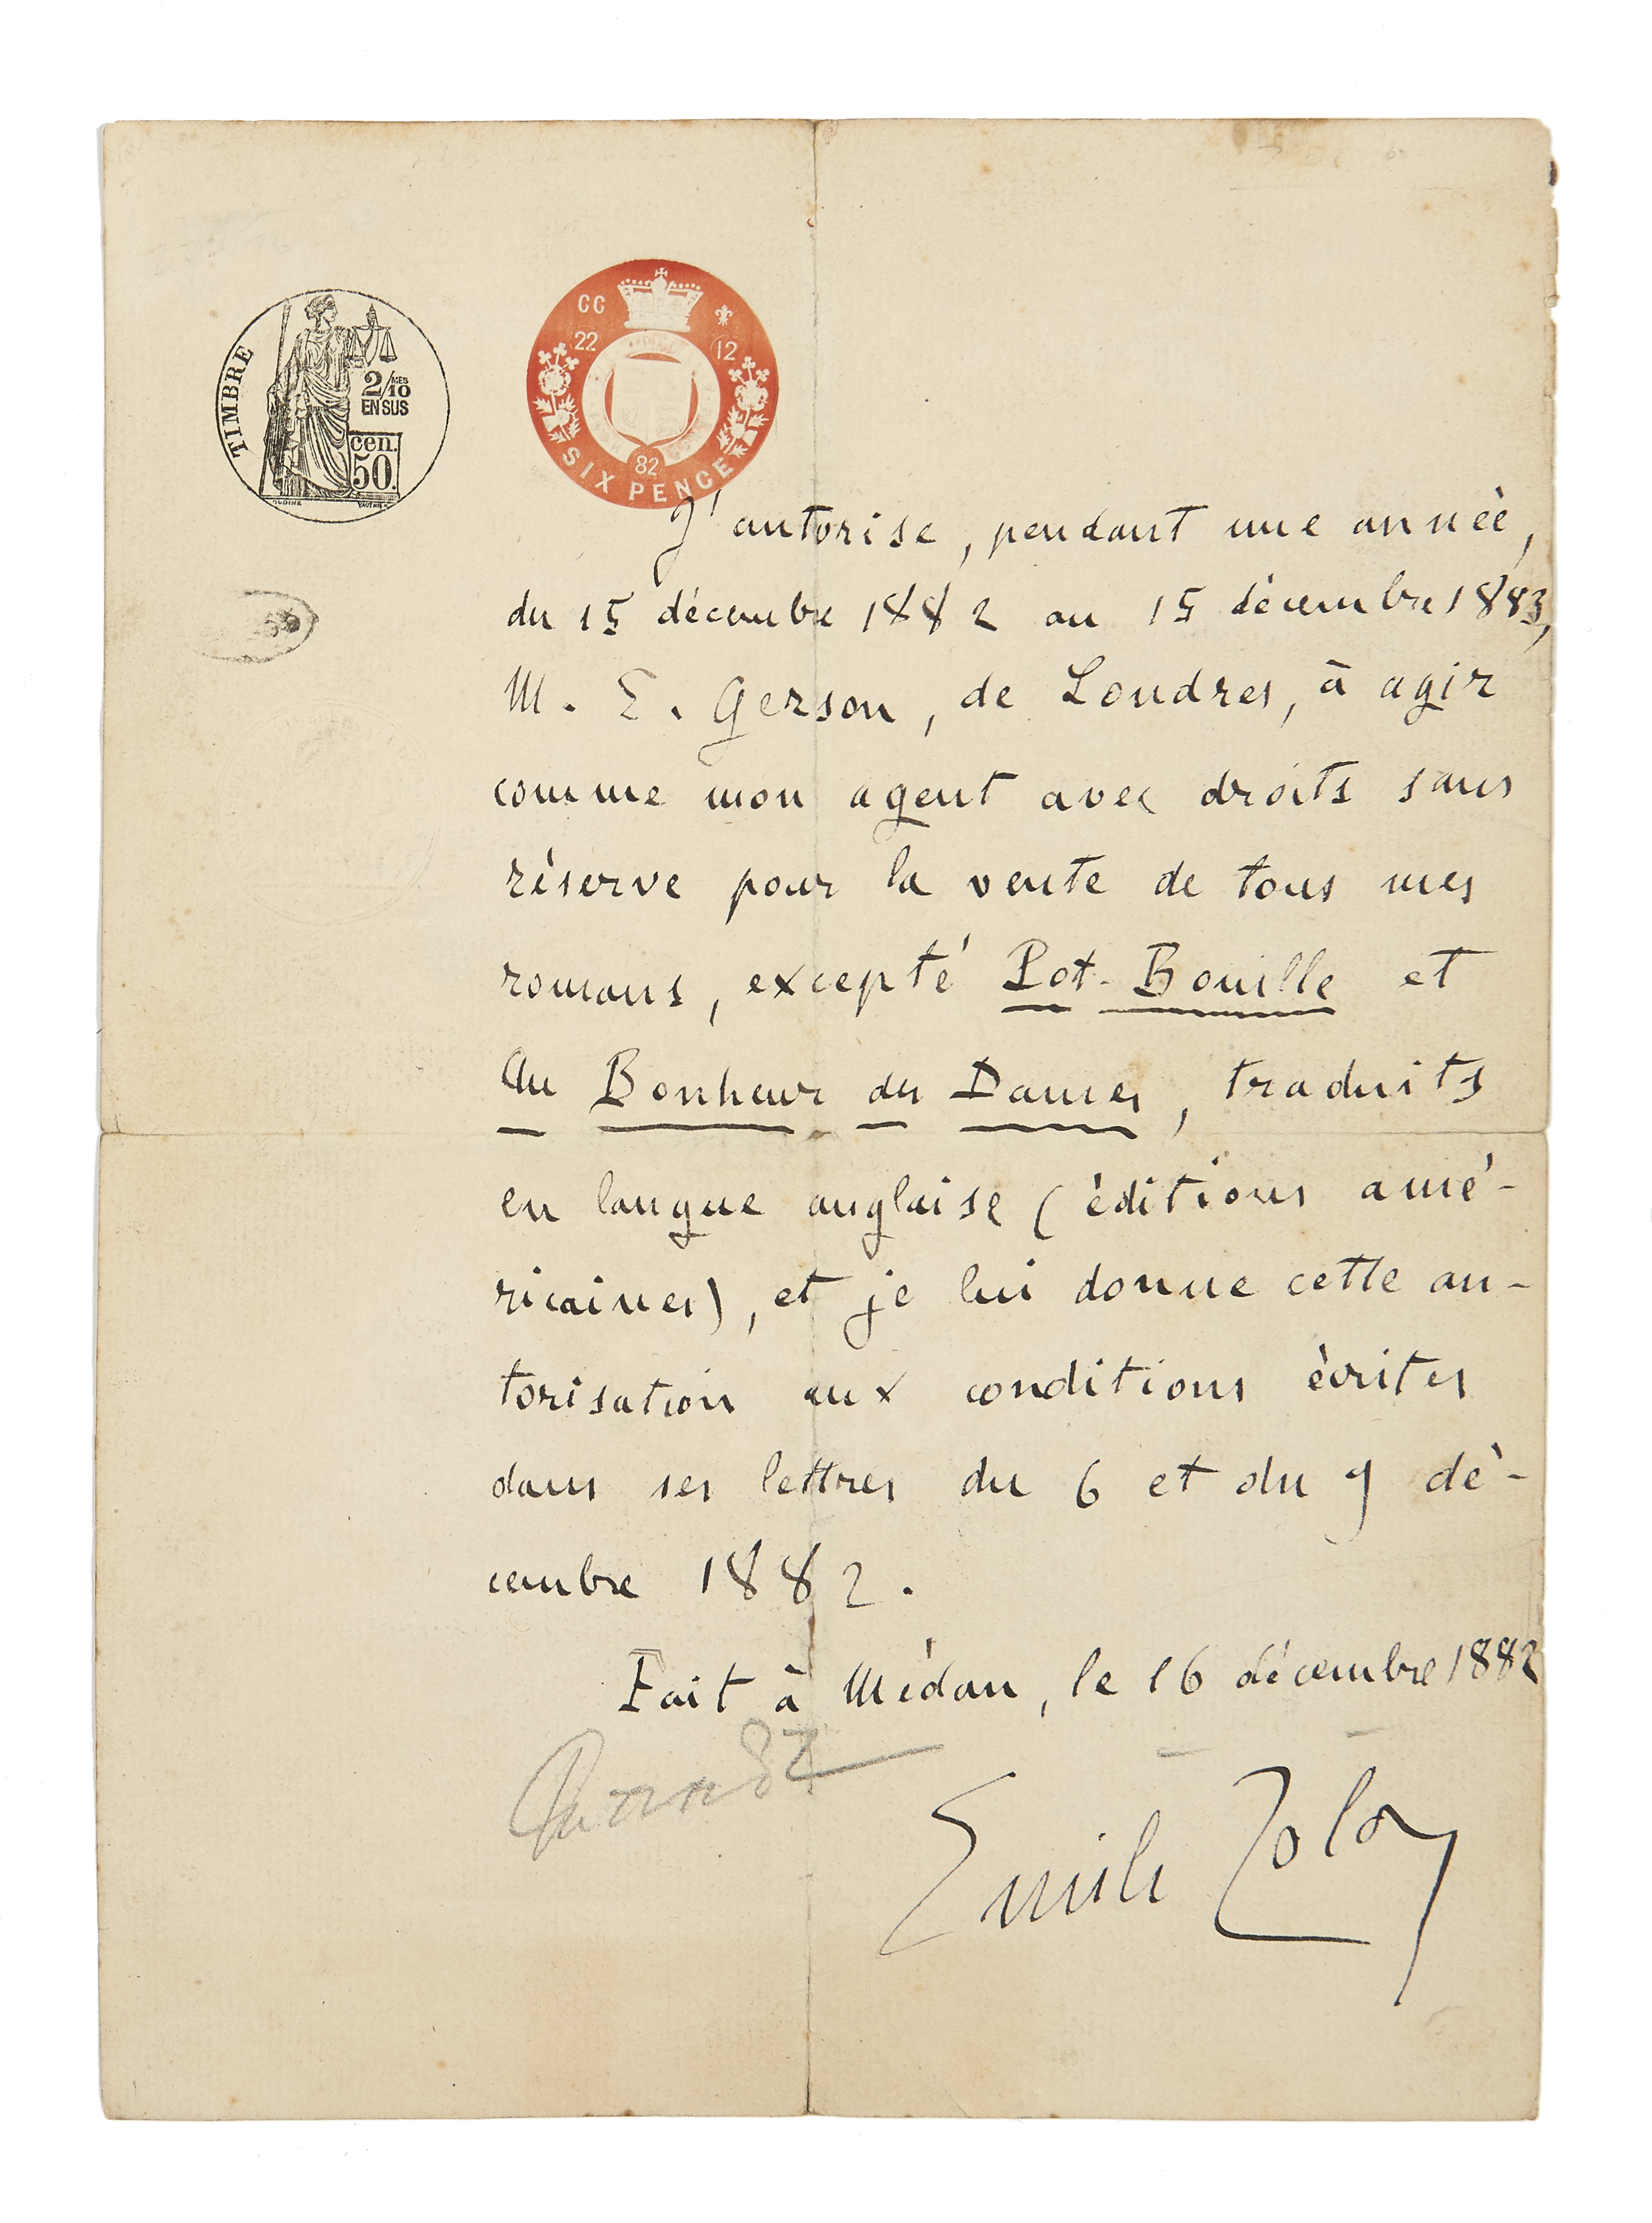 TIMBRE
2/10 MES
EN SUS
cen.
50.
CC
22 12
82
SIX PENCE
J'autorise, pendant une année,
du 15 décembre 1882 au 15 décembre 1883,
M. E. Gerson, de Londres, à agir
comme mon agent avec droits sans
réserve pour la vente de tous mes
romans, excepté Pot-Bouille et
Au Bonheur des Dames, traduits
en langue anglaise (éditions amé-
ricaines), et je lui donne cette au-
torisation aux conditions écrites
dans ses lettres du 6 et du 9 dé-
cembre 1882.
Fait à Médan, le 16 décembre 1882
Emile Zola